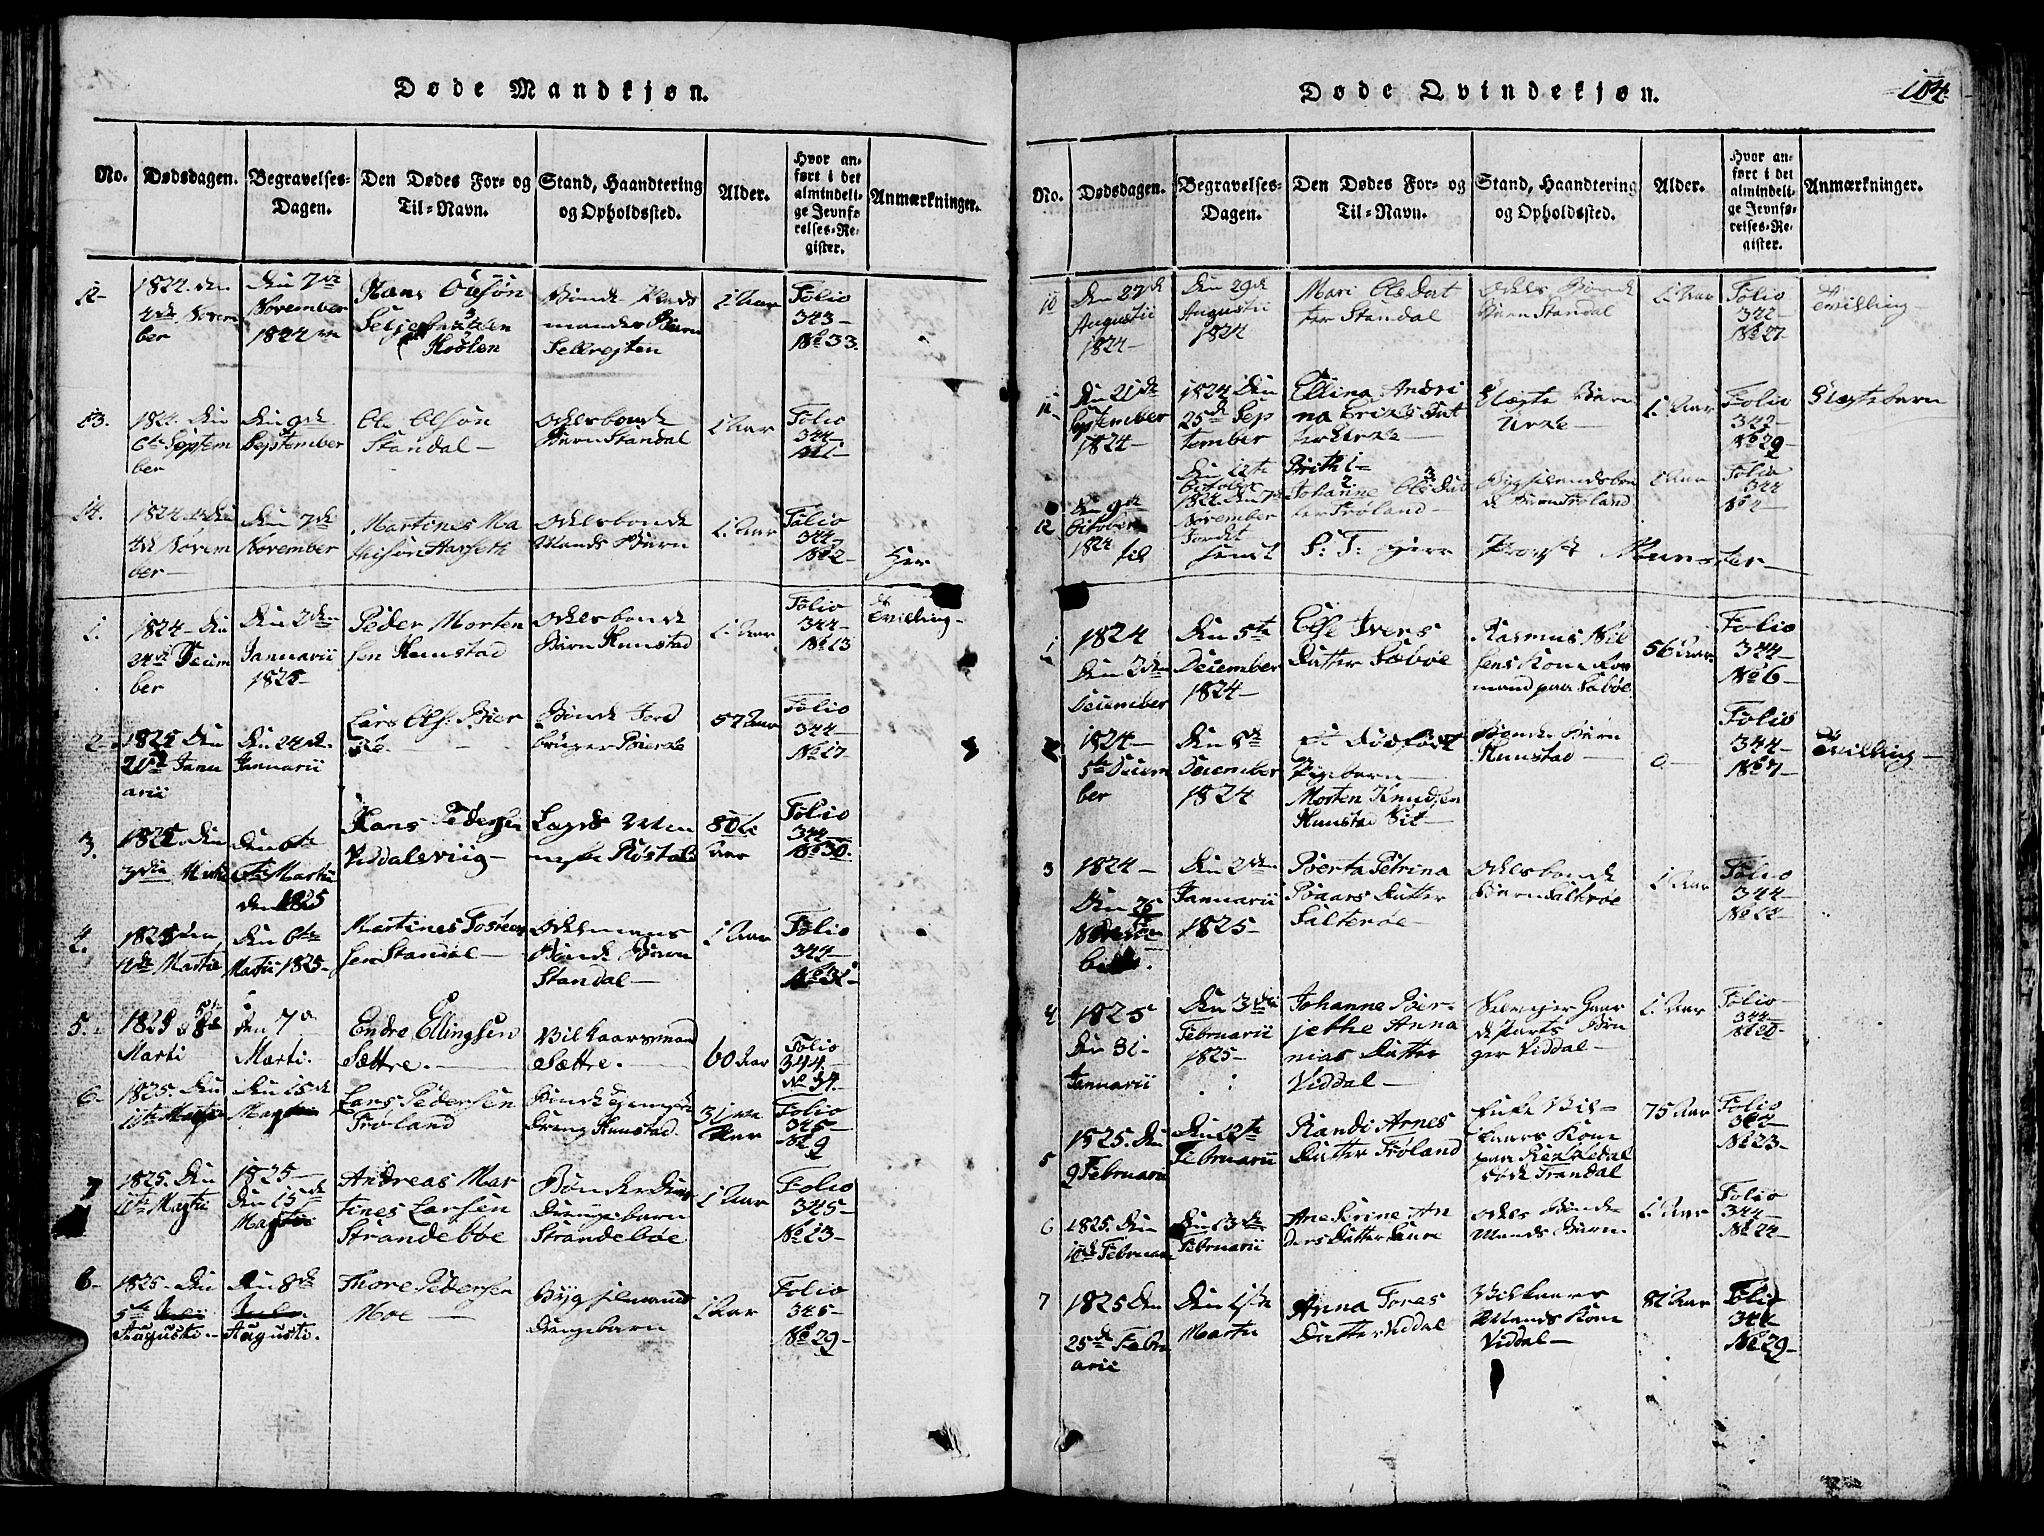 Døde Mandkjøn.
No.
Dødsdagen.
Begravelses-
Dagen.
Den Dødes For- og
Til-Navn.
Stand, Haandtering
og Opholdssted.
Alder.
Hvor an-
ført i det
almindeli-
ge Jevnfø
relses-Re-
gister.
Anmærkninger.
12-
1824. den
4de Novem
ber
Den 7de
November
1824
Hans
Bonde
mandes Barn
1 Aar
Folio
343-
No 33.
13.
1824. Den
6te Septem
ber
Den 9de
September
Ole Olsøn
Standal-
Odelsbonde
Barn Standal
1 Aar
Folio
344-
14.
1824 Den
4de Novem
ber-
Den 7de
November
Martines Ma
thisøn
Odelsbonde
Mands Barn
1. Aar
Folio
344
No 2-
1.
1824- Den
24de Decem
ber
Den 2den
Januarii
1825-
Peder Morten
sen Hunstad
Odelsbonde
Barn Hunstad
1. Aar
Folio
344-
No 13
Tvilling-
2-
1825 Den
21de Janu
arii
Den 24de
Januarii
Lars Ols:
Bonde Jord
bruger
57 Aar
Folio
344-
No 17-
3.
1825. Den
3die Martii
Den 6te
Martii
1825
Hans Pedersen
Viddalsviig-
Lægds
Aar
Folio
344-
No 30.
4.
1825 Den
Martii
Den 6te
Martii 1825-
Martines
sen Standal-
Odelsmans
Bonde Barn
Standal-
1 Aar
Folio
344-
No 31-
5.-
1825
Marti
den 7de
Marti.
Endre Ellingsen
Sættre.-
Vilkaarsmand
Sættre.-
60 Aar
Folio
344.
No 34-
6-
1825. Den
11te Martii
Den 15de
Martii
Lars Pedersen
Trøland
Bonde
Dreng Hunstad.
31
Aar
Folio
345-
No 9
7
1825. Den
11te Martii
1825-
Den 15de
Martii
Andreas Mar
tines Larsen
Strandebøe
Bønder
Drengebarn
Strandebøe
1 Aar
Folio
345-
No 23-
8-
1825. Den
5te Julii
Augusti.-
Den 8de
Julii
Augusti.
Thore Pedersen
Moe-
Bygselmands
Drengebarn
1 Aar
Folio
345-
No 29-
Døde Qvindekjøn.
104.
No.
Dødsdagen.
Begravelses-
Dagen.
Den Dødes For- og
Til-Navn.
Stand, Haandtering
og Opholdssted.
Alder.
Hvor an-
ført i det
almindeli-
ge Jevnfø-
relses-Re-
gister.
Anmærkninger.
10
Den 27de
Augustii
1824-
Den 29de
Augustii
1824
Mari Ols Dat
ter Standal
Odels Bonde
Barn Standal
1. Aar
Folio
322-
No 27-
Tvilling
11-
Den 21de
September
1824-
1824 Den
25de Sep
tember
Ellina Andri
na Eriks Dat
ter Urke-
Uægte Barn
Urke-
1. Aar
Folio
343-
No 29-
Uægte barn
12
Den 9de
October
1824
Den 12te
October
1824 Den 7de
November
Jordet
Brithe
Johanne Ols Dat
ter Trøland-
Bygselmandsbon
de Barn Trøland
1 Aar
Folio
344
No 4-
til
S: T: Herr
Provst
Munster-
1
1824
Den 2den
December
Den 5te
December
1824-
Else Ivers
Datter Sæbøe
Rasmus Nil
sens Kone
mand paa Sæbøe
56 Aar
Folio
344-
No 6-
2
1824-
5te Decem
ber
Den 8de
December
1824
et dødfødt
Pigebarn-
Morten Knudsen
Hunstad
Bonde Barn
Hunstad-
0-
Folio
344-
No 7-
Tvilling-
3
1824-
Den 26
Den 2den
Januarii
1825-
Berta Petrina
Datter
Sætterøe-
Odelsbonde
Barn
1 Aar
Folio
344-
No 18-
4
1825
Den 31-
Januarii
Den 3die
Februarii
1825-
Johanne Ber-
jethe Anna
nias Datter
Viddal-
ger Viddal-
1. Aar
Folio
344-
No 20-
5
1825. Den
9 Februarii
Den 12te
Februarii
Randi Arnes
Datter Trøland
kaars Kone
paa
død Trandal
75 Aar
Folio
No 23-
6
1825. Den
10de Februarii
Den 13de
Februarii
Ane Serine An
ders Datter
Odels Bonde
Mands Barn
1. Aar
Folio
344-
No 24-
7
1825 Den
25de Febru
arii
Den 1ste
Martii
Anna Tores
Datter Viddal
Vilkaars
Mands Kone
Viddal-
81 Aar
Folio
344
No 29-